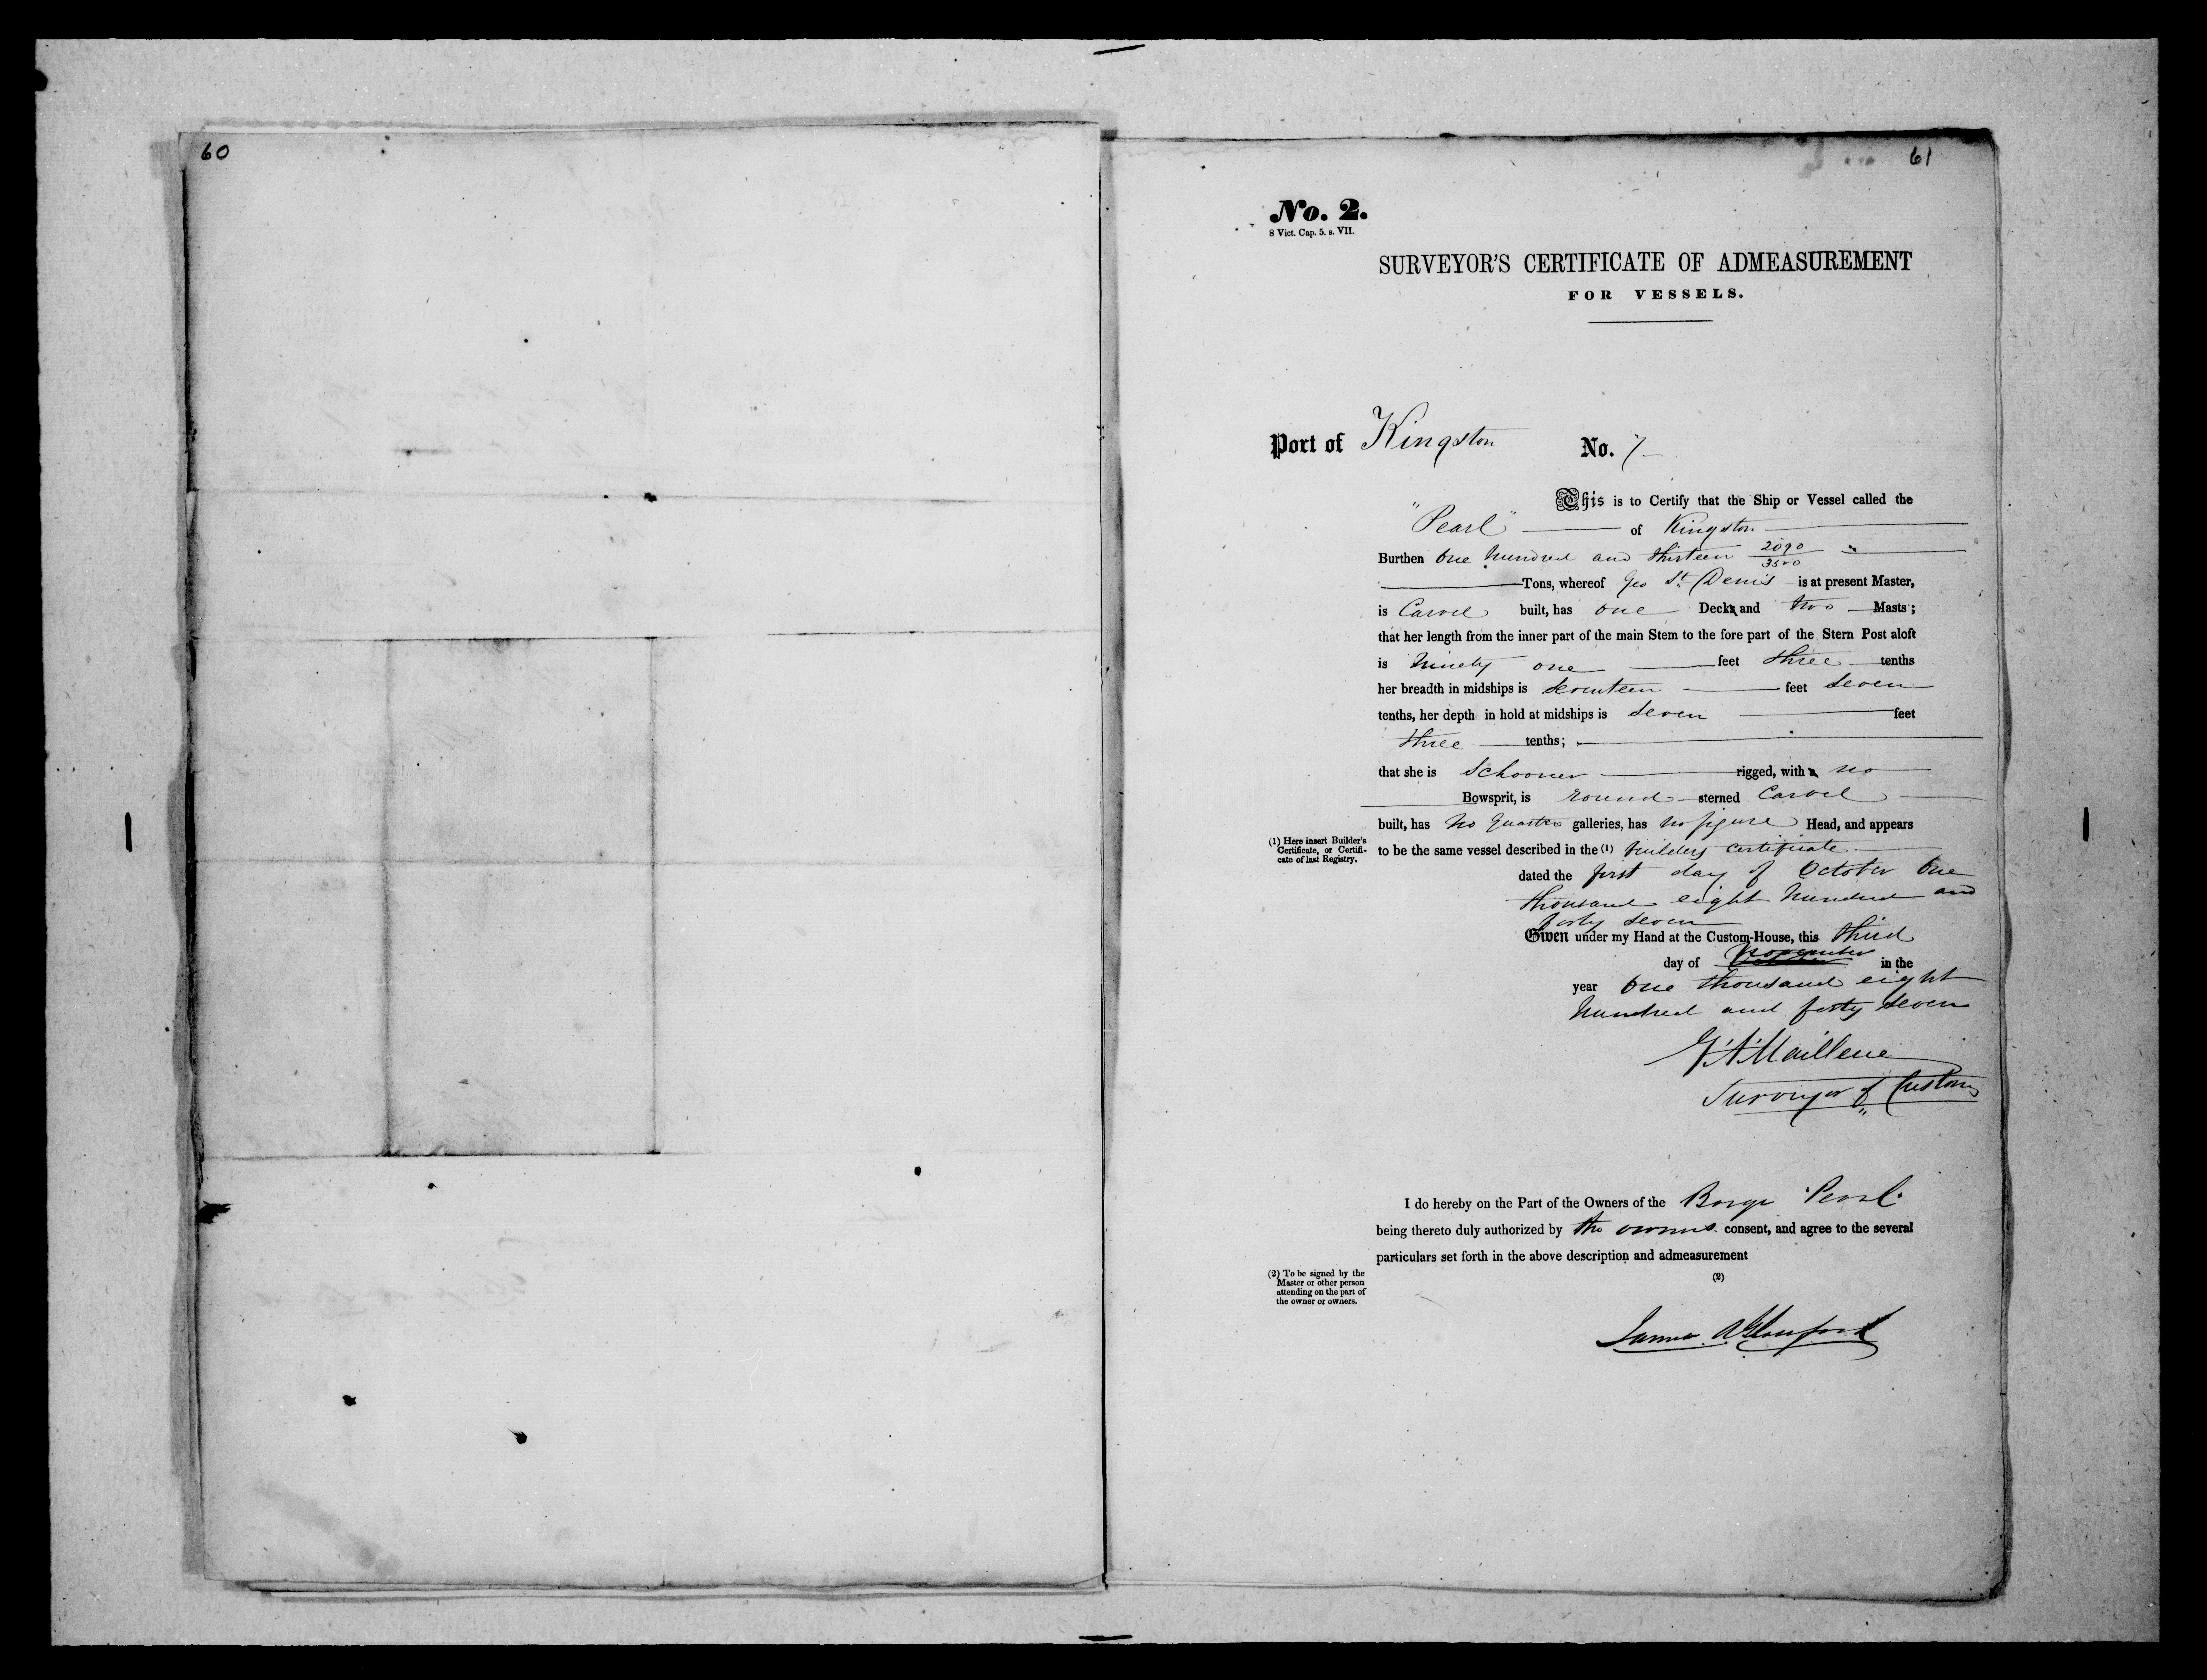 60
61
No. 2.
8 Vict. Cap. 5. s. VII.
SURVEYOR'S CERTIFICATE OF ADMEASUREMENT
FOR VESSELS.
Port of Kingston No. 7
This is to Certify that the Ship or Vessel called the
"Pearl" of Kingston
Burthen One hundred and thirteen 2090/3500
Tons, whereof Geo St. Denis is at present Master,
is Carvel built, has one Decks and two Masts;
that her length from the inner part of the main Stem to the fore part of the Stern Post aloft
is Ninety one feet three tenths
her breadth in midships is Seventeen feet Seven
tenths, her depth in hold at midships is Seven feet
three tenths;
that she is Schooner rigged, with a no
Bowsprit, is round sterned Carvel
built, has No Quarter galleries, has no figure Head, and appears
(1) Here insert Builder's
Certificate, or Certifi-
cate of last Registry.
to be the same vessel described in the (1) builders certificate
dated the first day of October One
thousand eight hundred and
forty seven
Given under my Hand at the Custom-House, this third
day of November in the
year One thousand eight
hundred and forty seven
Surveyor of Customs
I do hereby on the Part of the Owners of the Barge "Pearl"
being thereto duly authorized by the owners consent, and agree to the several
particulars set forth in the above description and admeasurement
(2) To be signed by the
Master or other person
attending on the part of
the owner or owners.
(2)